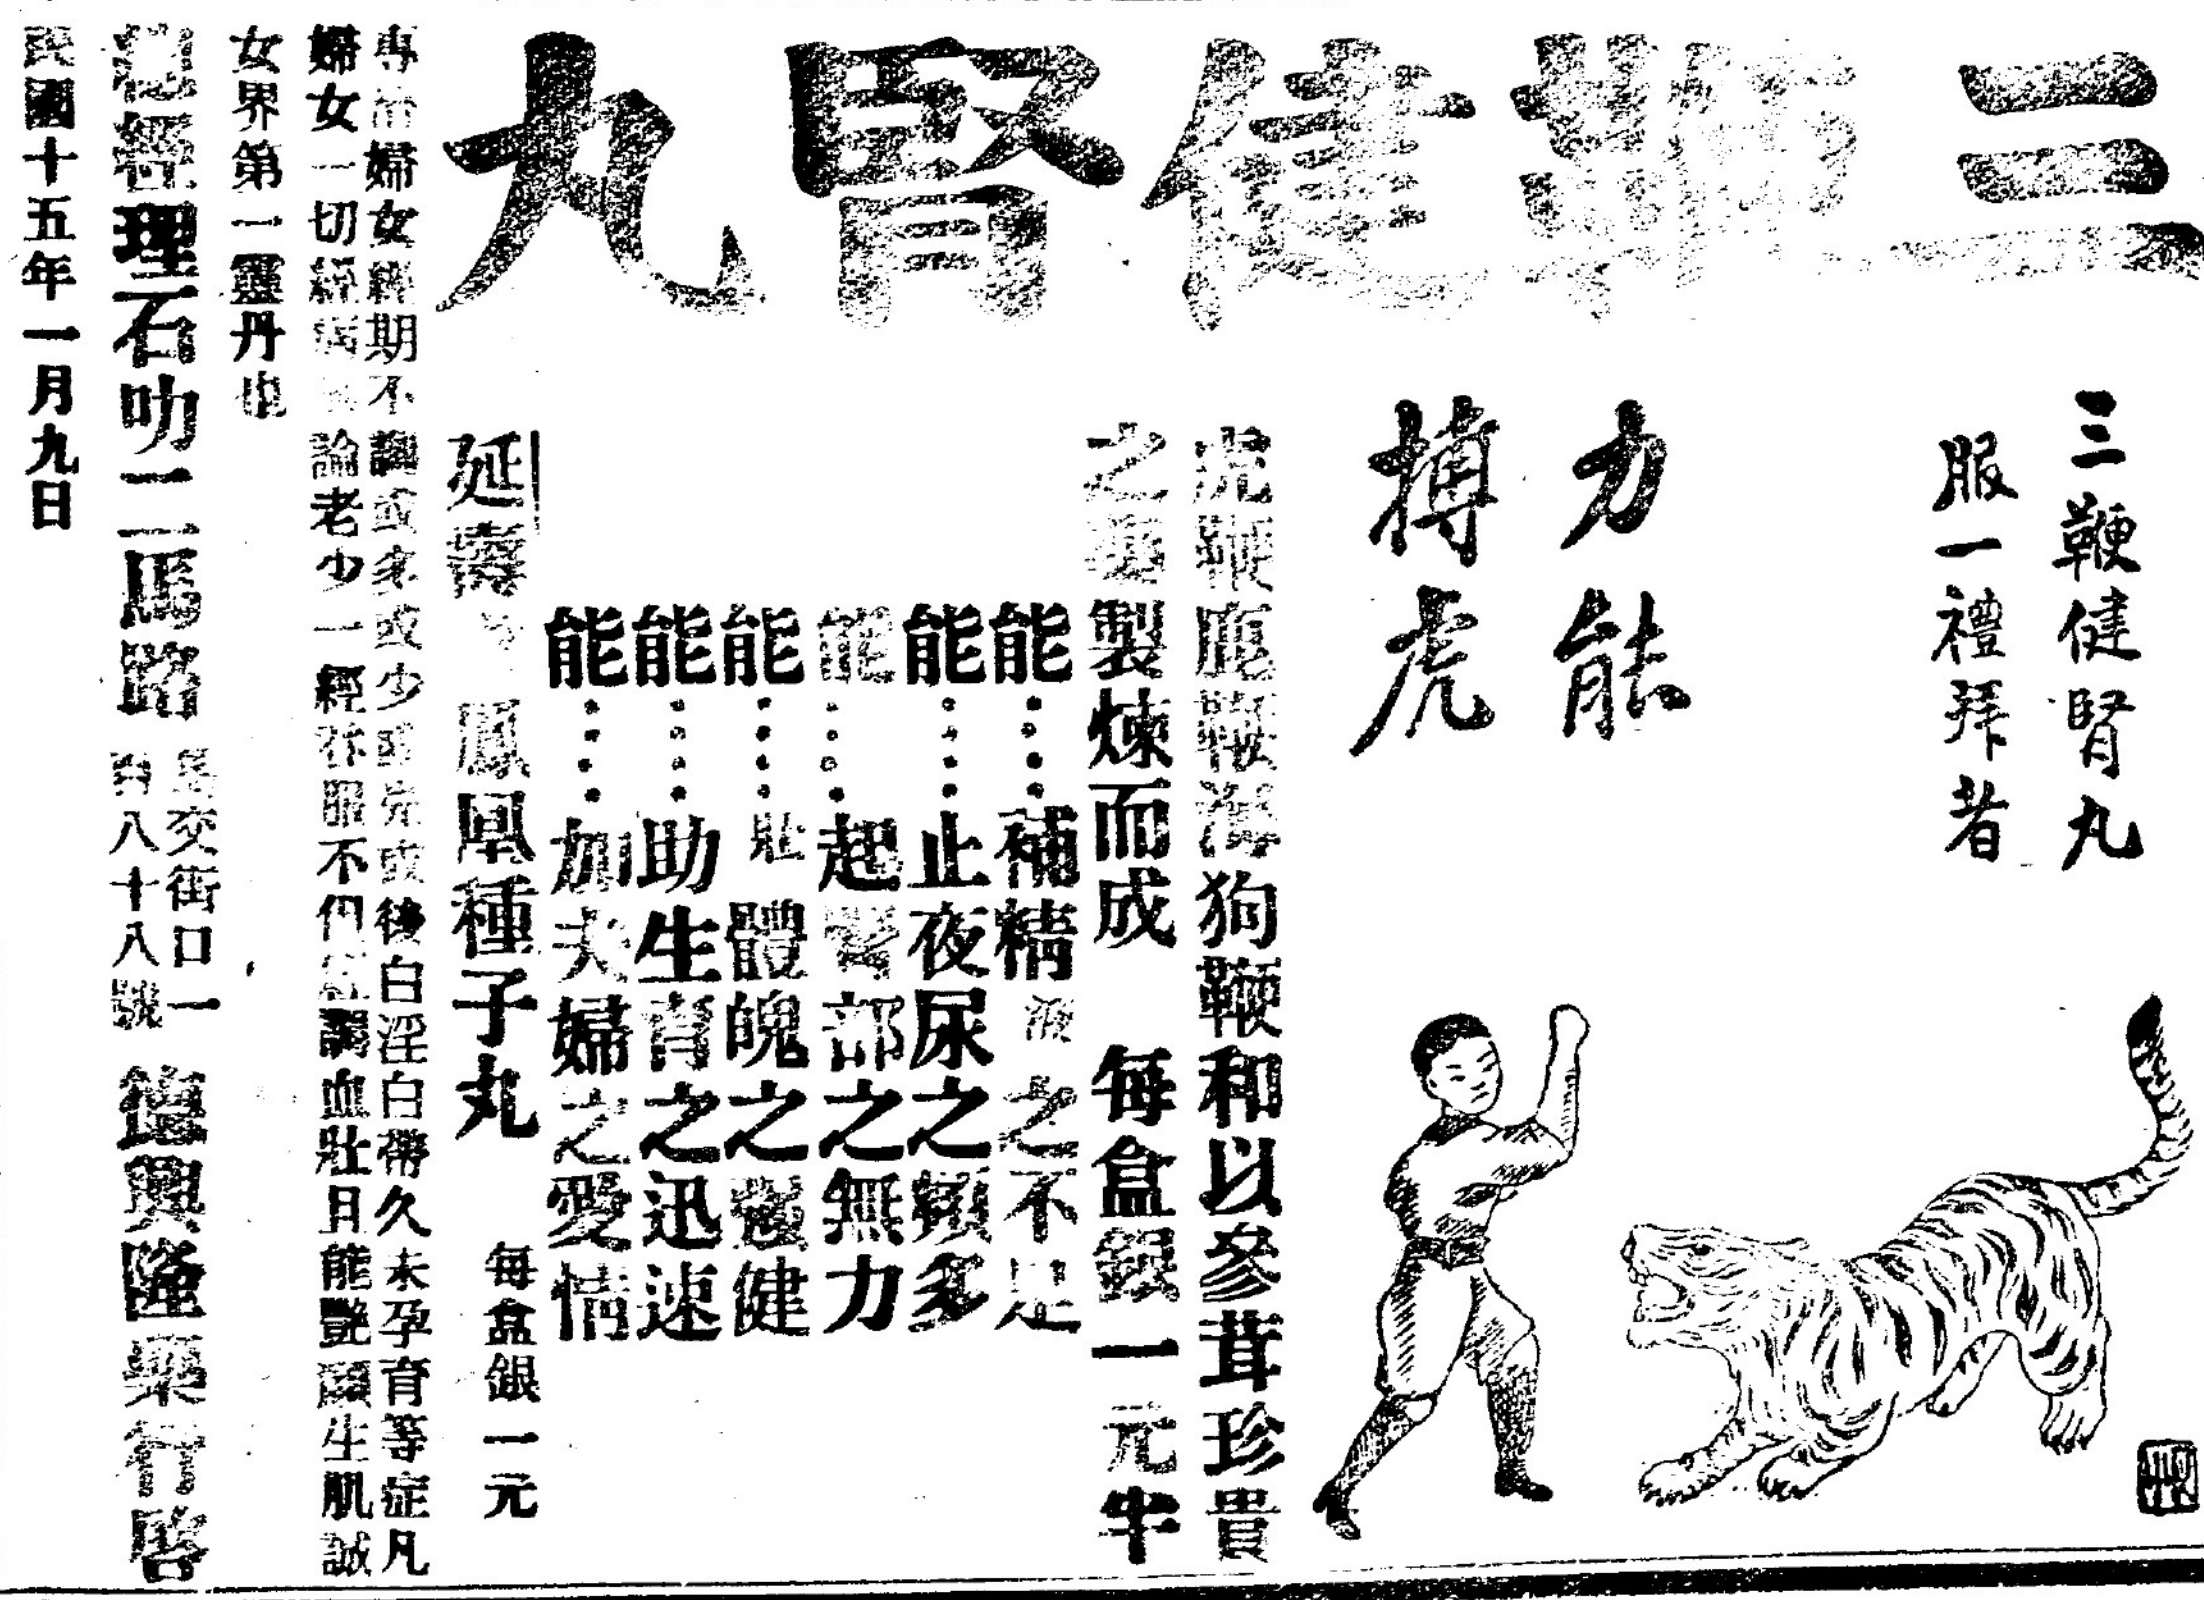 三鞭健腎丸
三鞭健腎丸
服一禮拜者
力能
搏虎
虎鞭鹿鞭海狗鞭和以參茸珍貴
之藥製煉而成 每盒銀一元半
能……補精液之不足
能……止夜尿之頻多
能……起腎部之無力
能……壯體魄之强健
能……助生育之迅速
能……加夫婦之愛情
延壽 鳳凰種子丸 每盒銀一元
專治婦女經期不調或多或少或先或後白淫白帶久未孕育等症凡
婦女一切經病 論老少一經 服不但 調血壯且能艷顏生肌誠
女界第一靈丹也
總經理石叻二馬路 馬交街口一百八十八號 興隆藥行啓
民國十五年一月九日